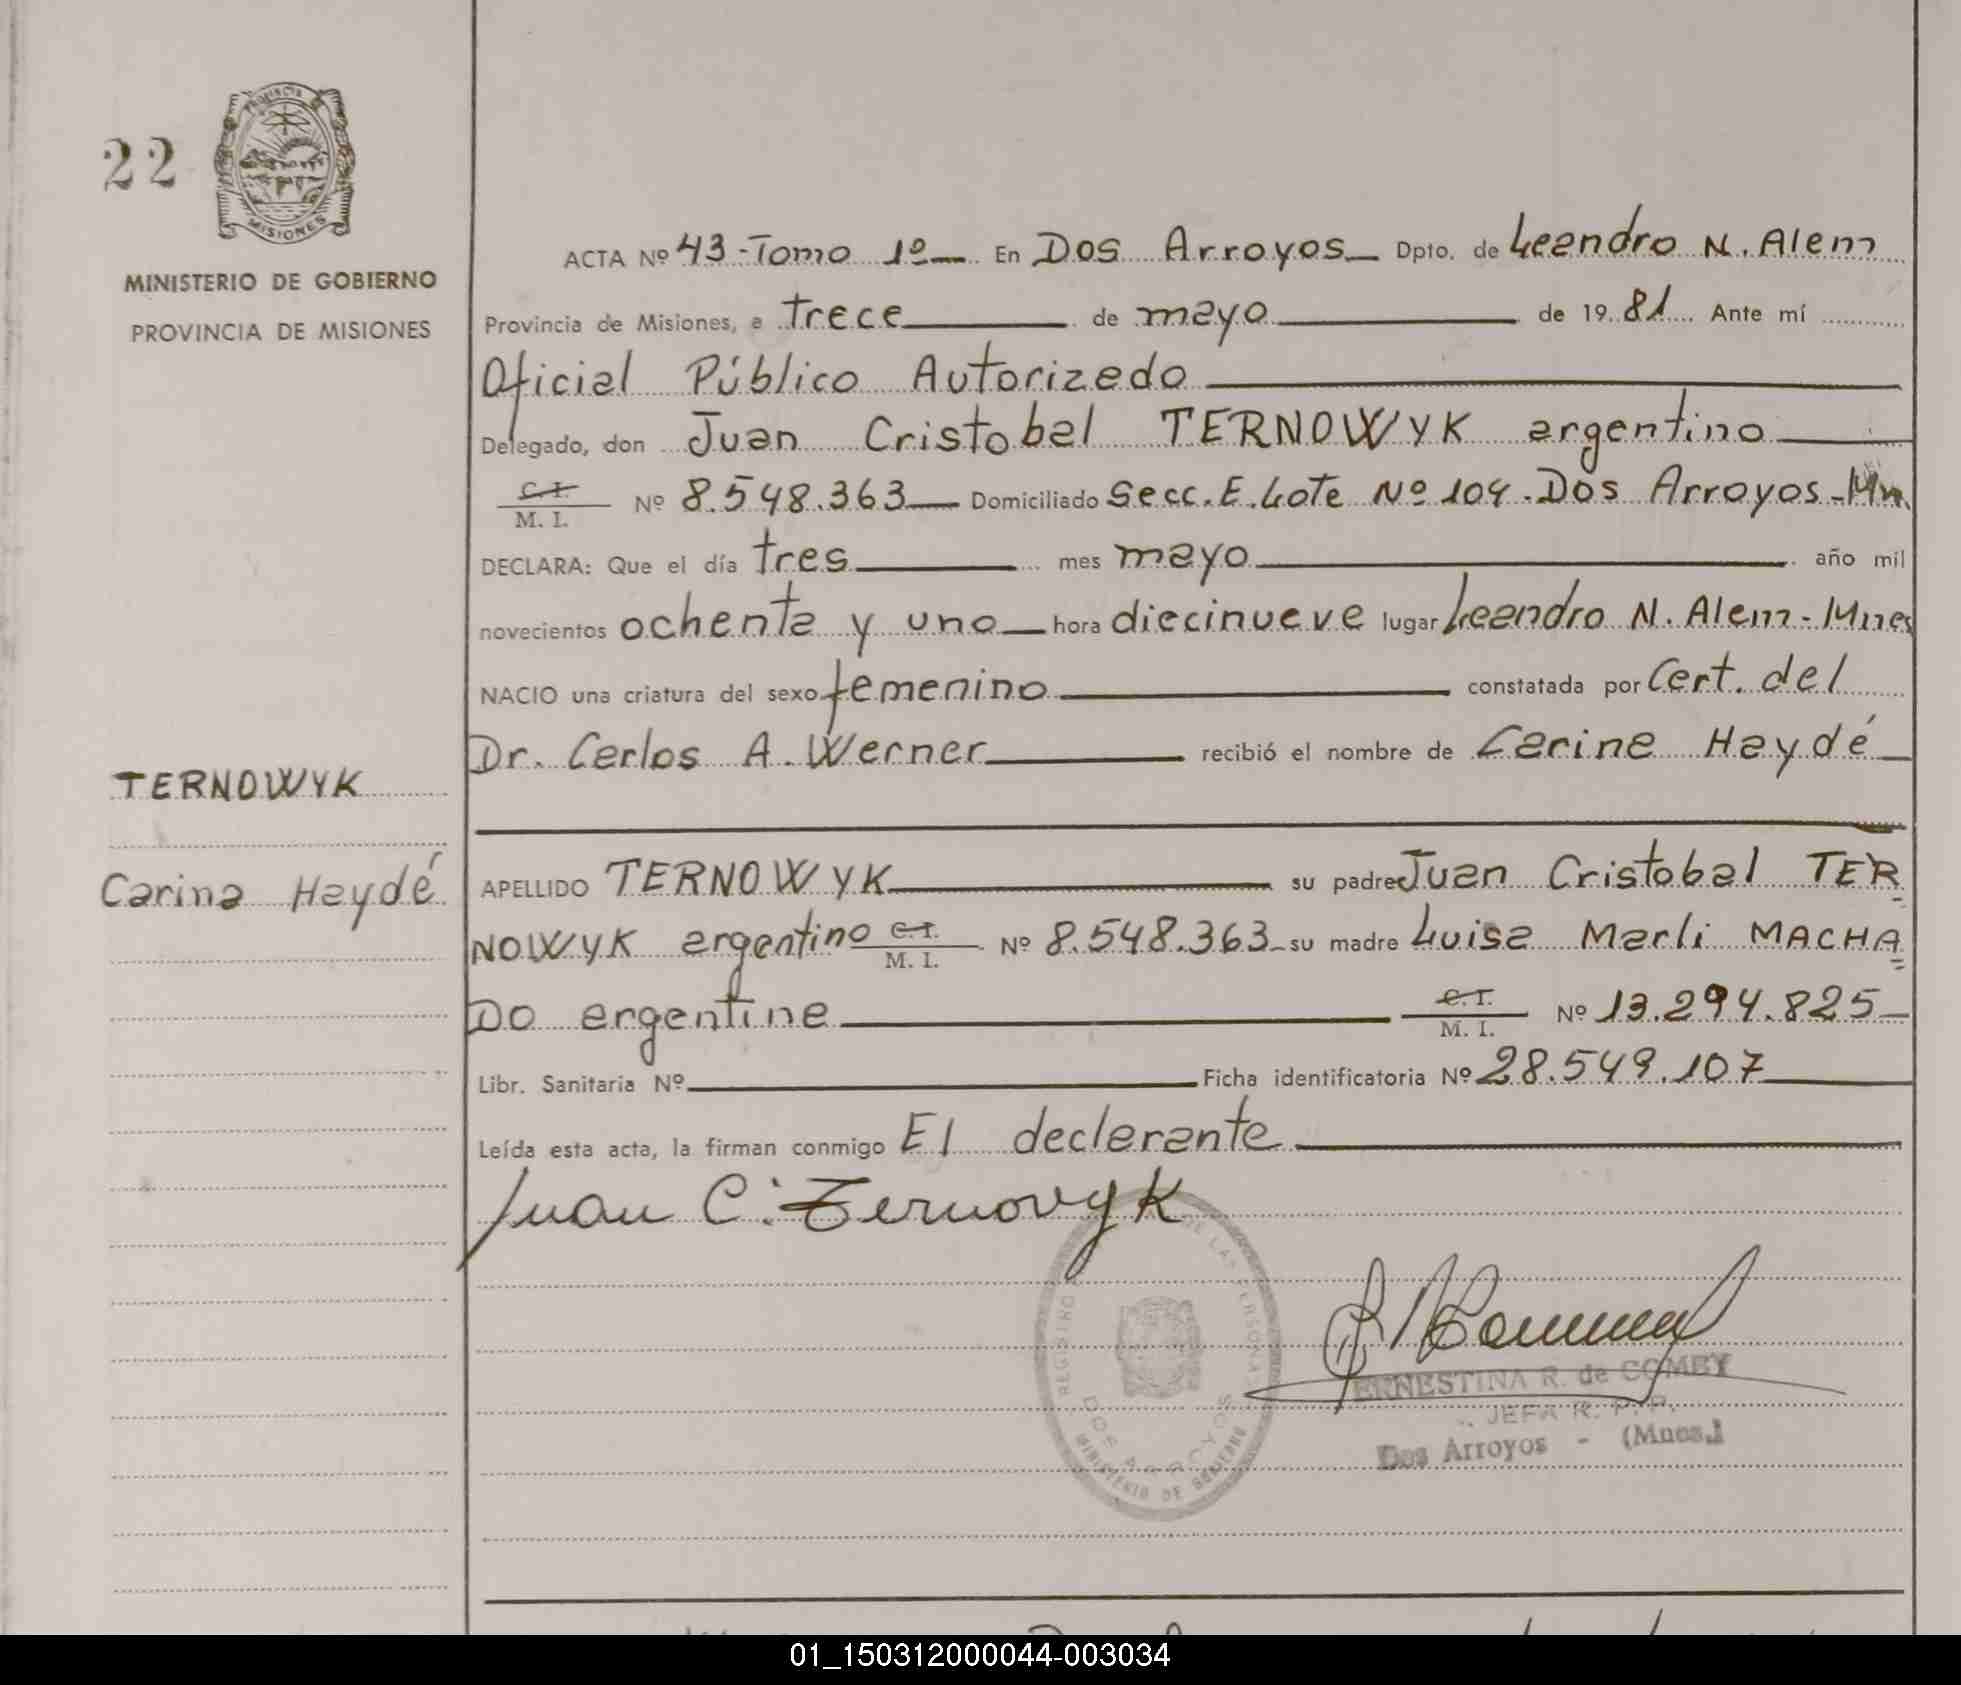 22
PROVINCIA
MISIONES
MINISTERIO DE GOBIERNO
PROVINCIA DE MISIONES
TERNOWYK
Carina Haydé
ACTA Nº 43-Tomo 1º En Dos Arroyos Dpto. de Leandro N. Alem
Provincia de Misiones, a trece de mayo de 1981 Ante mí
Oficial Público Autorizado
Delegado, don Juan Cristobal TERNOWYK argentino
C.I. M. I. Nº 8.548.363 Domiciliado Secc. E. Lote Nº 104. Dos Arroyos-Mn
DECLARA: Que el día tres mes mayo año mil
novecientos ochenta y uno hora diecinueve lugar Leandro N. Alem-Mnes
NACIO una criatura del sexo femenino constatada por Cert. del
Dr. Carlos A. Werner recibió el nombre de Carina Haydé
APELLIDO TERNOWYK su padre Juan Cristobal TER
NOWYK argentino C.I. M. I. Nº 8.548.363 su madre Luisa Marli MACHA
DO argentina C.I. M. I. Nº 13.294.825
Libr. Sanitaria Nº Ficha identificatoria Nº 28.549.107
Leída esta acta, la firman conmigo El declarante
Juan C. Ternovyk
REGISTRO DE LAS PERSONAS
DOS ARROYOS
MINISTERIO DE GOBIERNO
ERNESTINA R. de COMBY
JEFA R. P. P.
Dos Arroyos - (Mnes.)
01_150312000044-003034